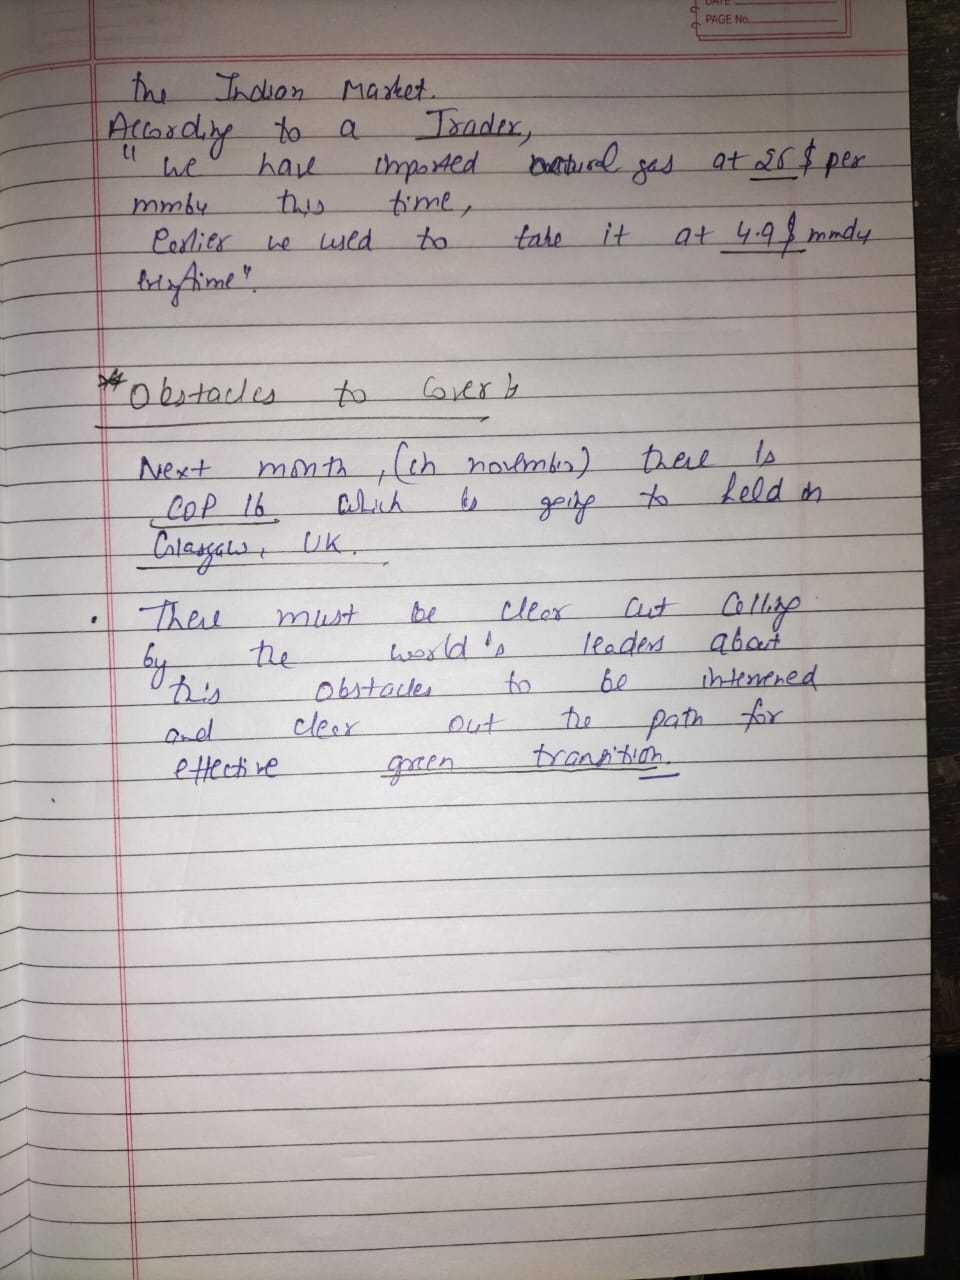 DATE
PAGE No.
the Indian Market.
According to a Trader,
"we have imported natural gas at 26 $ per
mmbu this time,
Earlier we used to take it at 4.9 $ mmdy
everytime".
* Obstacles to Cover :-
Next month, (in november) there is
COP 16 which is going to held in
Glasgaw, UK.
• There must be clear cut Calling
by the world's leaders about
this obstacles to be intervened
and clear out the path for
effective green transition.